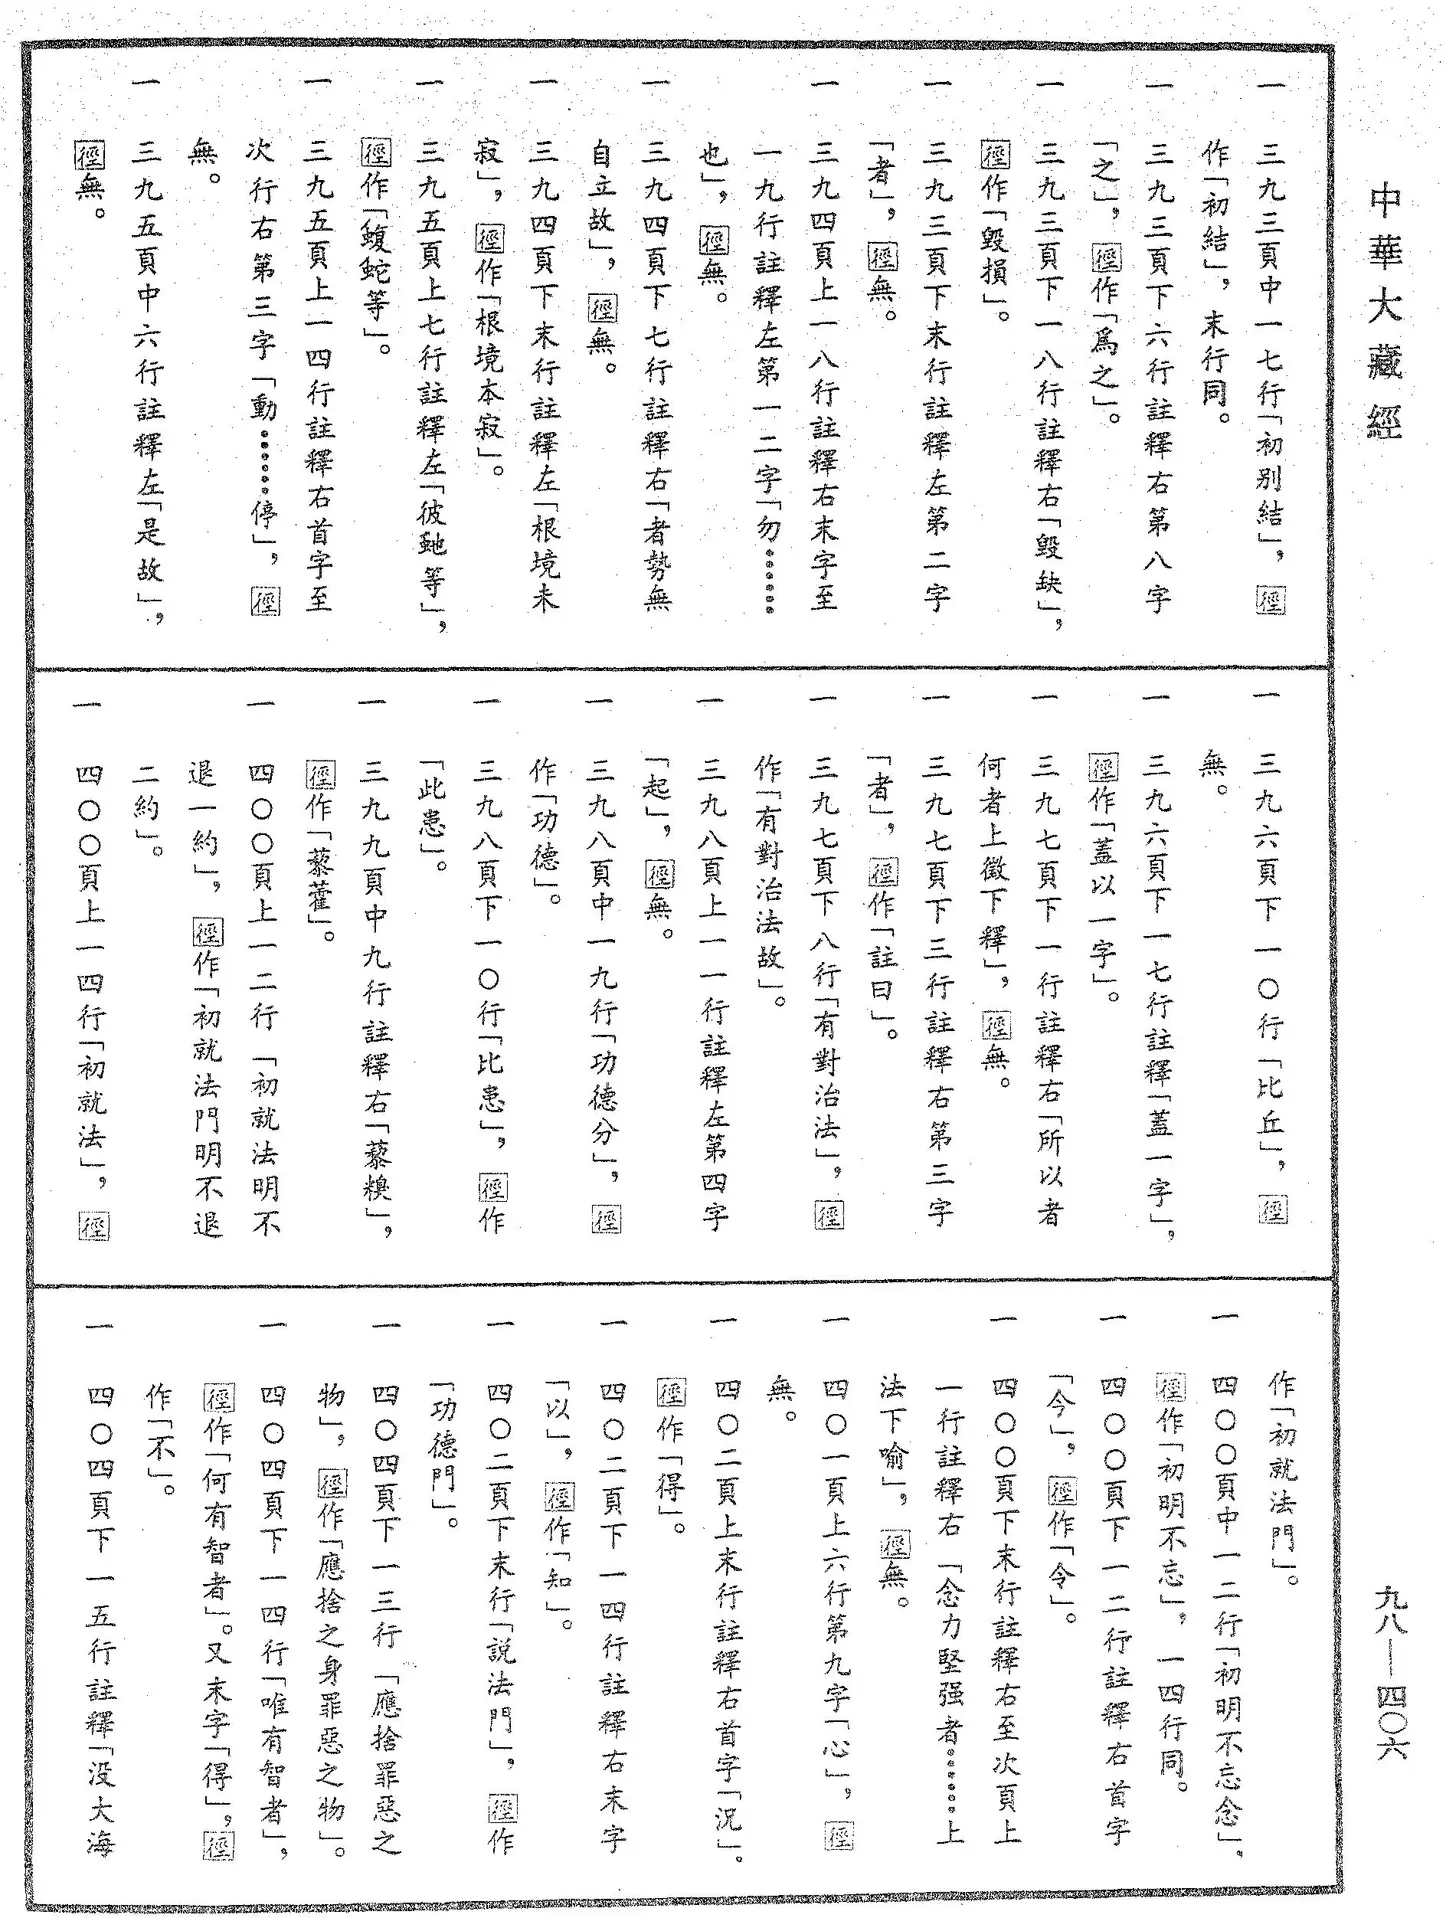 中華大藏經
一　三九三頁中一七行「初別結」，徑
作「初結」，末行同。
一　三九三頁下六行註釋右第八字
「之」，徑作「爲之」。
一　三九三頁下一八行註釋右「毀缺」，
徑作「毀損」。
一　三九三頁下末行註釋左第二字
「者」，徑無。
一　三九四頁上一八行註釋右末字至
一九行註釋左第一二字「勿……
也」，徑無。
一　三九四頁下七行註釋右「者勢無
自立故」，徑無。
一　三九四頁下末行註釋左「根境未
寂」，徑作「根境本寂」。
一　三九五頁上七行註釋左「彼虵等」，
徑作「蝮蛇等」。
一　三九五頁上一四行註釋右首字至
次行右第三字「動……停」，徑
無。
一　三九五頁中六行註釋左「是故」，
徑無。
一　三九六頁下一〇行「比丘」，徑
無。
一　三九六頁下一七行註釋「蓋一字」，
徑作「蓋以一字」。
一　三九七頁下一行註釋右「所以者
何者上徵下釋」，徑無。
一　三九七頁下三行註釋右第三字
「者」，徑作「註曰」。
一　三九七頁下八行「有對治法」，徑
作「有對治法故」。
一　三九八頁上一一行註釋左第四字
「起」，徑無。
一　三九八頁中一九行「功德分」，徑
作「功德」。
一　三九八頁下一〇行「比恚」，徑作
「此恚」。
一　三九九頁中九行註釋右「藜糗」，
徑作「藜藿」。
一　四〇〇頁上一二行「初就法明不
退一約」，徑作「初就法門明不退
二約」。
一　四〇〇頁上一四行「初就法」，徑
作「初就法門」。
一　四〇〇頁中一二行「初明不忘念」，
徑作「初明不忘」，一四行同。
一　四〇〇頁下一二行註釋右首字
「今」，徑作「令」。
一　四〇〇頁下末行註釋右至次頁上
一行註釋右「念力堅强者……上
法下喻」，徑無。
一　四〇一頁上六行第九字「心」，徑
無。
一　四〇二頁上末行註釋右首字「況」。
徑作「得」。
一　四〇二頁下一四行註釋右末字
「以」，徑作「知」。
一　四〇二頁下末行「説法門」，徑作
「功德門」。
一　四〇四頁下一三行「應捨罪惡之
物」，徑作「應捨之身罪惡之物」。
一　四〇四頁下一四行「唯有智者」，
徑作「何有智者」。又末字「得」，徑
作「不」。
一　四〇四頁下一五行註釋「没大海
九八—四〇六